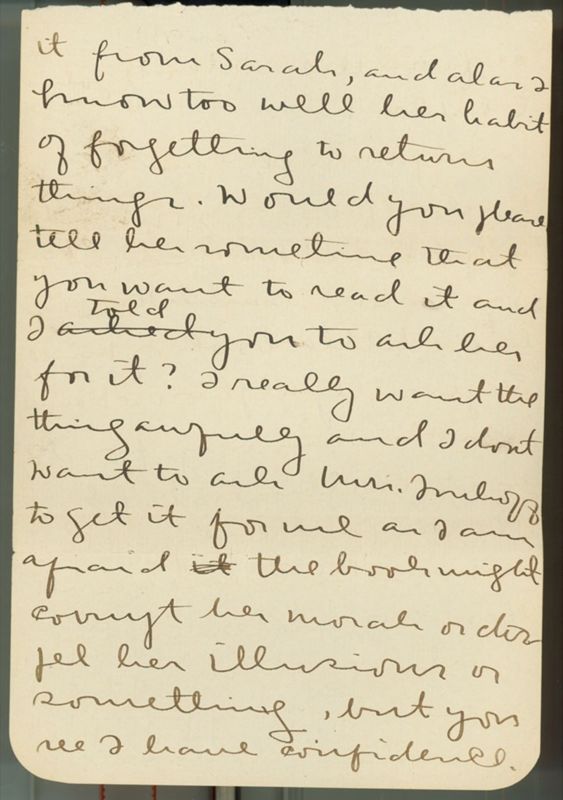 it from Sarah, and alas I
know too well her habit
of forgetting to return
things. Would you please
tell her sometime that
you want to read it and
told
I asked you to ask her
for it? I really want the
thing awfully and I dont
want to ask Mrs.
to get it for me as I am
afraid it the book might
corrupt her morals or dis-
pel her illusions or
something, but you
see I have confidence.